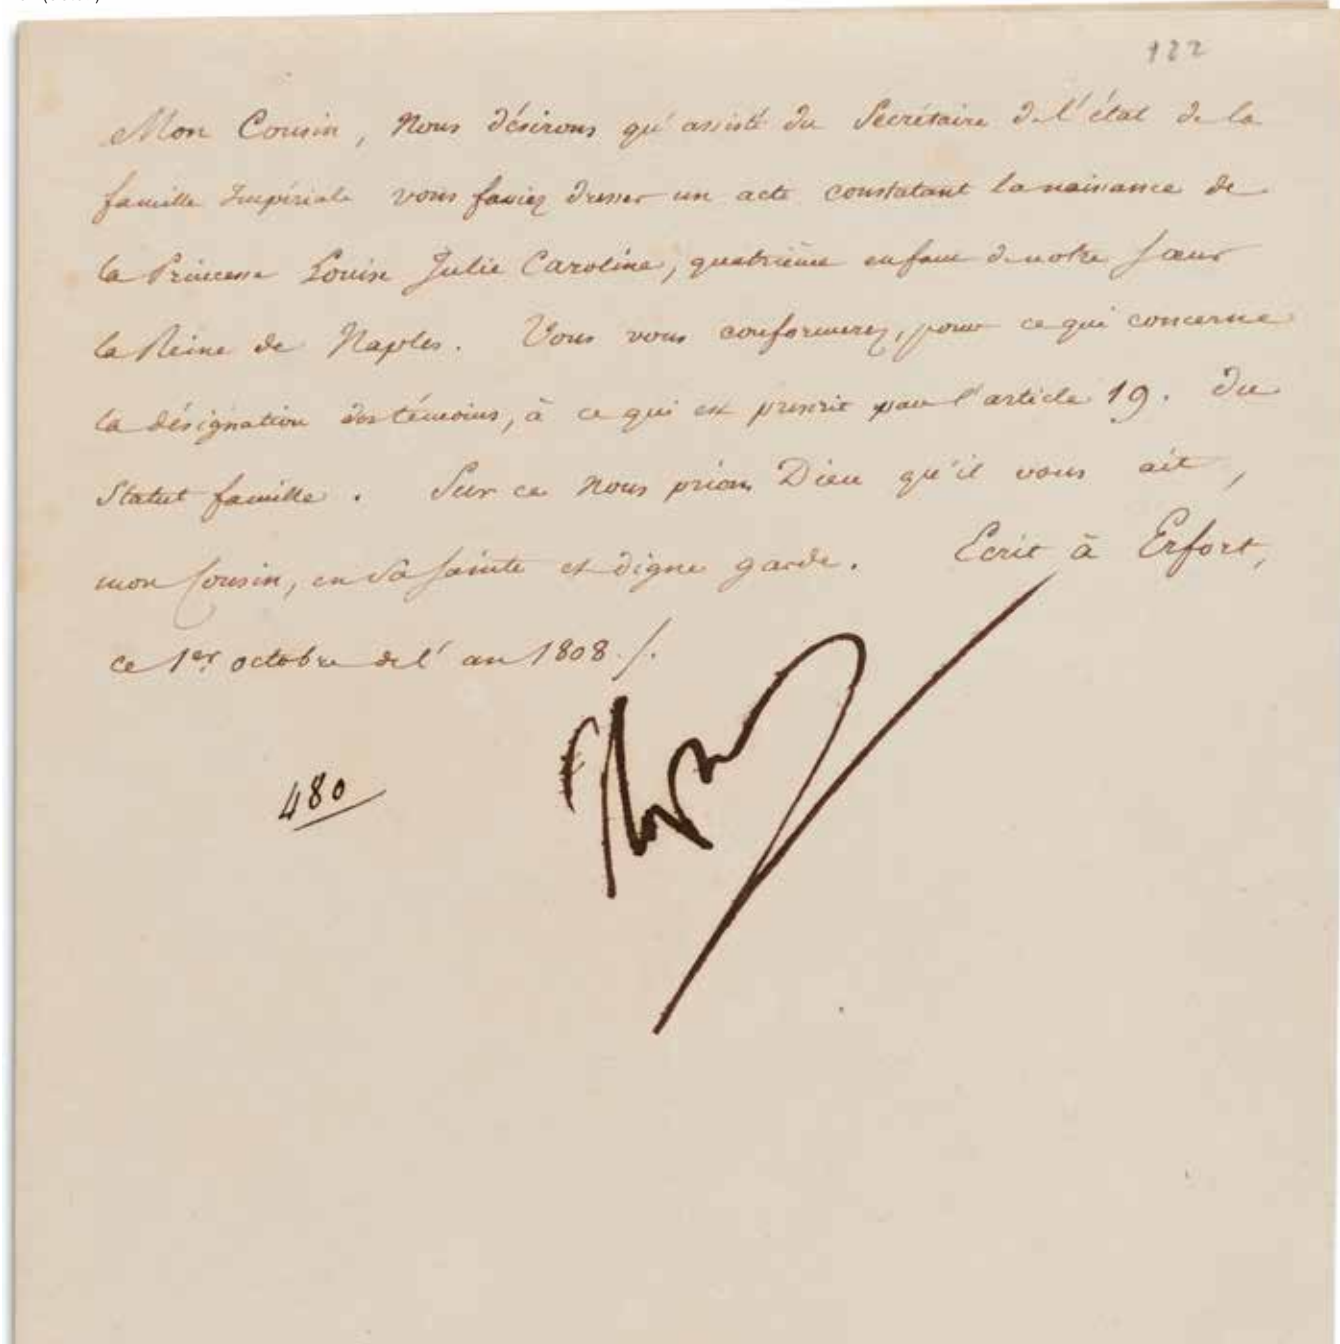 122
Mon Cousin, Nous désirons qu'assisté du Secrétaire de l'état de la
famille Impériale vous fassiez dresser un acte constatant la naissance de
la Princesse Louise Julie Caroline, quatrième enfant de notre sœur
la Reine de Naples. Vous vous conformerez, pour ce qui concerne
la désignation des témoins, à ce qui est prescrit par l'article 19. du
Statut famille. Sur ce nous prions Dieu qu'il vous ait,
mon Cousin, en sa sainte et digne garde. Ecrit à Erfort,
ce 1er octobre de l'an 1808 ./.
480